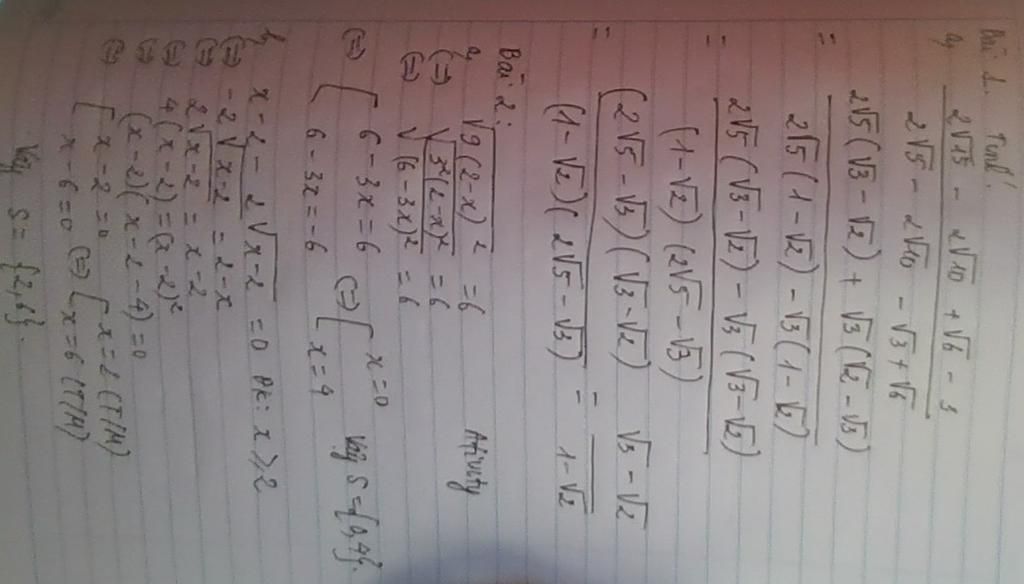 Bài 1. Tính!
a, (2√15 - 2√10 + √6 - 3) / (2√5 - 2√10 - √3 + √6)
= (2√5(√3 - √2) + √3(√2 - √3)) / (2√5(1 - √2) - √3(1 - √2))
= (2√5(√3 - √2) - √3(√3 - √2)) / ((1 - √2)(2√5 - √3))
= ((2√5 - √3)(√3 - √2)) / ((1 - √2)(2√5 - √3)) = (√3 - √2) / (1 - √2)
Bài 2:
a, √9(2-x)² = 6
(=) √3²(2-x)² = 6
(=) √(6-3x)² = 6
(=) [ 6-3x=6 (=) [ x=0
6-3x=-6 x=4 Vậy S={0,4}.
b, x-2-2√x-2 = 0 ĐK: x ≥ 2
(=) -2√x-2 = 2-x
(=) 2√x-2 = x-2
(=) 4(x-2)=(x-2)²
(=) (x-2)(x-2-4)=0
(=) [ x-2=0 (=) [ x=2 (T/M)
x-6=0 x=6 (T/M)
Vậy S={2,6}.